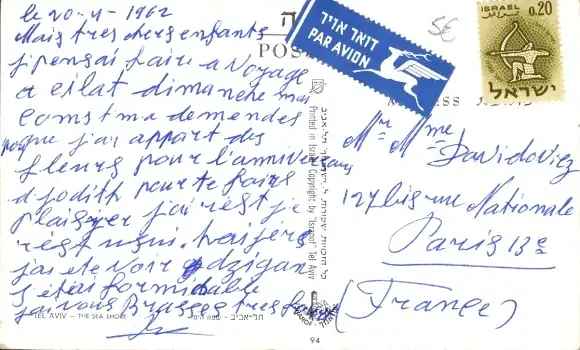 le 20-4-1962
Mais tres chers enfants
je pensai faire a voyage
a eilat dimanche mai
comst ma demendes
que j'ai apport des
fleurs pour l'anniversair
d jodith pour te faire
plaisyer j'ai rest je
rest
j'ai ete voir dzigan
s etai formidable
je vous Brasse tres fort
TEL AVIV - THE SEA SHORE
תל-אביב - שפת הים
94
Printed in Israel Copyright by "Isranof" Tel Aviv
POS
ה
דואר אויר
PAR AVION
5€
ISRAEL
0.20
ישראל
Mr Mme Davidoviez
127 bis rue Nationale
Paris 13e
(France)